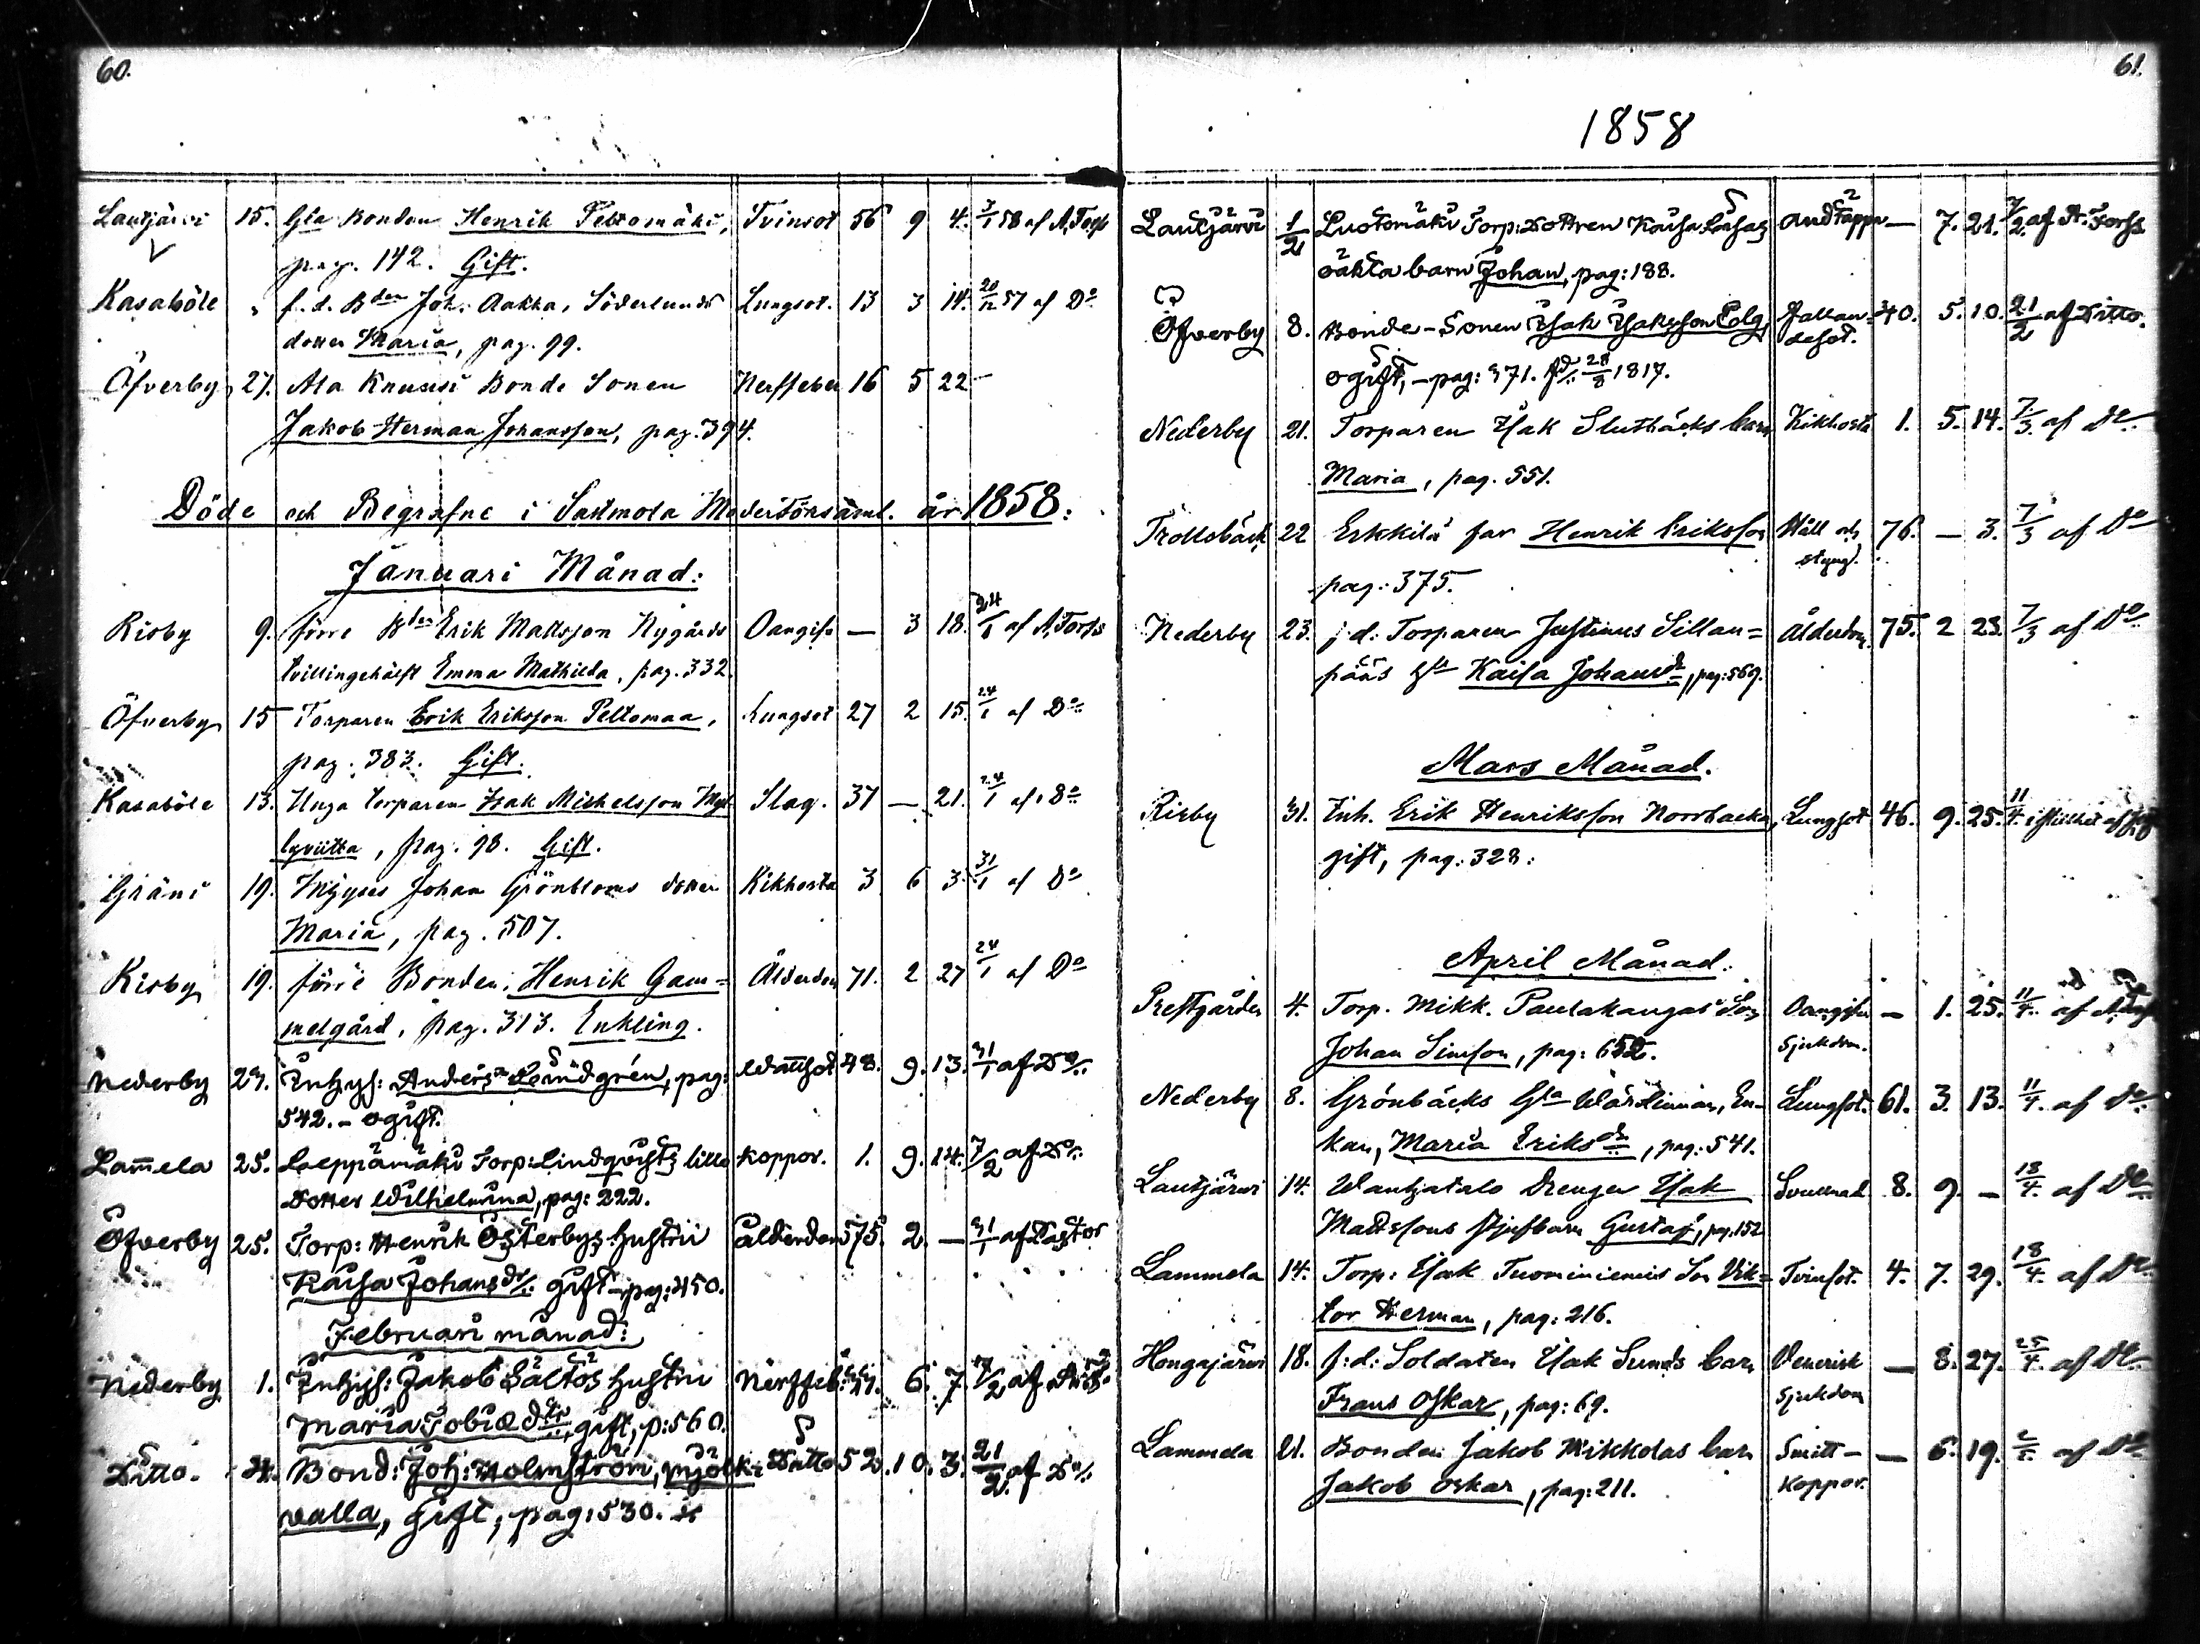 60.
Lautjärvi 15. Gla Bonden Henrik Peltomäki, Tvinsot 56 9 4. 3/1 58 af A. Forss
pag. 142. Gift.
Kasaböle „ f. d. Bden Joh. Aakka, Söderlunds Lungsot. 13 3 14. 20/12 57 af Do
dotter Maria, pag. 99.
Öfverby 27. Ala Knuussi Bonde Sonen Nerffeber 16 5 22 —
Jakob Herman Johansson, pag. 394.
Döde och Begrafne i Sastmola Moderförsaml. år 1858:
Januari Månad:
Risby 9. förre Bden Erik Mattsson Nygårds Oangifv — 3 18. 24/1 af A. Forss
tvillingehälft Emma Mathilda, pag. 332.
Öfverby 15 Torparen Erik Eriksson Peltomaa, Lungsot 27 2 15. 24/1 af Do
pag. 383. Gift.
Kasaböle 13. Unga torparen Isak Michelsson Myl- Slag. 37 — 21. 24/1 af Do
lyviitta, pag. 98. Gift.
Gräni 19. Inhyses Johan Grönbloms dotter Kikhosta 3 6 3. 31/1 af Do
Maria, pag. 507.
Risby 19. förre Bonden, Henrik Gam= Ålderdom 71. 2 27 24/1 af Do
melgård, pag. 313. Enkling.
Nederby 23. Inhys: Anders Lindgrén, pag: Wattsot 48. 9. 13. 31/1 af Do
542. – ogift.
Lamela 25. Leppämäki Torp: Lindqvists lilla koppor. 1. 9. 14. 7/2 af Do
Dotter Wilhelmina, pag: 222.
Öfverby 25. Torp: Henrik Österbys hustru ålderdom 575. 2. — 31/1 af Pastor
Kaisa Johansdr. gift – pag: 450.
Februari månad:
Nederby 1. Inhys: Jakob Sältös hustru Nerffeb. 6. 7. 14/2 af
Maria Tobiædtr, gift, p: 560.
Ditto. Bond: Joh: Holmström, Mjölk= Ditto 52. 10. 3. 21/2 af Do
valla, gift, pag: 530.
61.
1858
Lautjärvi 1/2 Luotomäki Torp: Dottren Kaisa Lisas andtäppa — 7. 21. 7/2 af A. Forss
oäkta barn Johan, pag: 188.
Öfverby 8. Bonde-Sonen Isak Isaksson Polg, Fallan= 40. 5. 10. 21/2 af Ditto.
ogift, – pag: 371. fd: 28/8 1817. desot.
Nederby 21. Torparen Isak Slutbäcks barn Kikhosta 1. 5. 14. 7/3 af Do
Maria, pag. 551.
Trollsbäck 22 Erkkilä far Henrik Eriksson Håll och 76. — 3. 7/3 af Do
pag: 375. styng.
Nederby 23. f. d. Torparen Justinus Sillan= Ålderdom 75. 2 23. 7/3 af Do
pääs Hu Kaisa Johansdr, pag: 569.
Mars Månad.
Risby 31. Inh. Erik Henriksson Norrbacka, Lungsot 46. 9. 25. 11/4. i stillhet af
gift, pag: 328:
April Månad.
Prestgården 4. Torp. Mikk. Paulakangas Son Oangifven — 1. 25. 11/4. af
Johan Simson, pag: 652. Sjukdom.
Nederby 8. Grönbäcks Gla Wärdinnan, En- Lungsot. 61. 3. 13. 11/4. af Do
kan, Maria Eriksdr, pag: 541.
Lautjärvi 14. Wantjatalo Drengen Isak Svullnad 8. 9. — 18/4. af Do
Mattssons styfbarn Gustaf, pag. 152
Lammela 14. Torp: Isak Tuominiemis Son Vik= Tvinsot. 4. 7. 29. 18/4. af Do
tor Herman, pag: 216.
Hongajärvi 18. f: d: Soldaten Isak Sunds barn Venerisk — 8. 27. 25/4. af Do
Frans Oskar, pag: 69. Sjukdom
Lammela 21. Bonden Jakob Mikkolas barn Smitt- — 6. 19. af Do
Jakob Oskar, pag: 211. koppor.